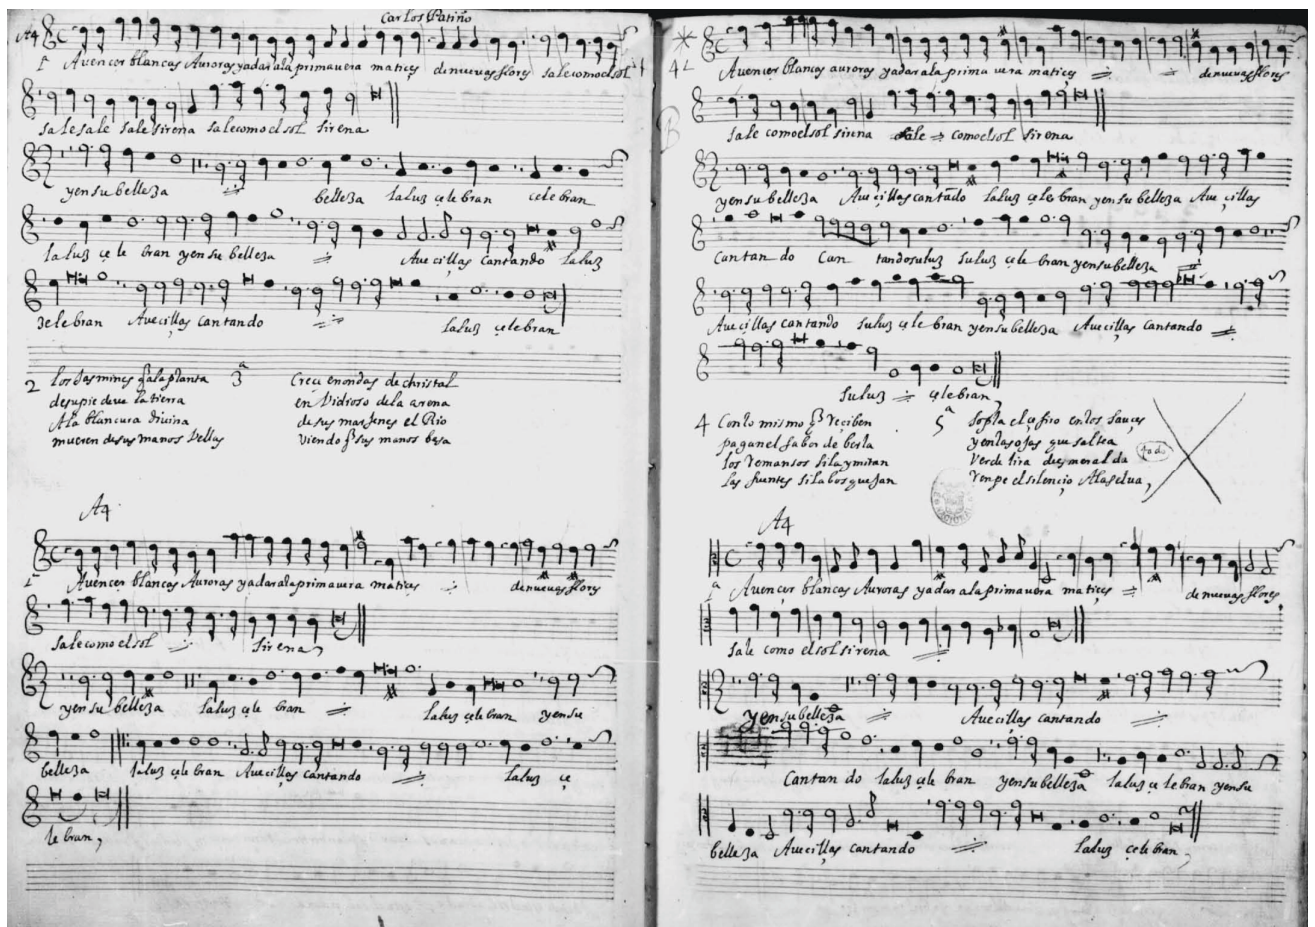 Carlos Patiño
A4
1ª Avencer blancas Auroras yadarala primavera matices denuevas flores salecomoelsol
sale sale sale sirena salecomoelsol sirena
yensu belleza belleza laluz çelebran celebran
laluz çele bran yensu belleza Aueçillas cantando laluz
zelebran Aueçillas cantando laluz çelebran
2 los Jasmines q̃ ala planta
desupie deue la tierra
Ala blancura diuina
mueren desus manos Vellas
3ª
en Vidrioso dela arena
desus marjenes el Rio
viendo q̃ sus manos besa
A4
1ª Avencer blancas Auroras yadarala primauera matices denueuas flores
salecomo elsol sirena
yensu belleza laluz çele bran laluz çelebran yensu
belleza laluz çele bran Aueçillas cantando laluz çe
le bran,
4
Avencer blancas auroras yadarala prima uera matiçes denueuas flores
sale comoelsol sirena sale comoelsol sirena
yensubelleza Aueçillas cantādo laluz çele bran yensu belleza Aueçillas
cantan do Can tandosuluz suluz çele bran yensubelleza
Aueçillas cantando suluz çele bran yensubelleza Aueçillas cantando
suluz çelebran,
4 Conlo mismo q̃ reçiben
paganel fabor de berla
los Remansos
las fuentes
5ª Sopla el çefiro enlos sauçes
yenlas ojas que saltea
Verde lira de esmeralda
Ronpe el silençio Alaselua,
A4
1ª Avençer blancas Auroras yadar ala primauera matiçes denueuas flores,
sale como elsol sirena
yensubelleza Aueçillas cantando
Cantan do laluz çele bran yensubelleza laluz çe lebran yensu
belleza Aueçillas cantando laluz çele bran,